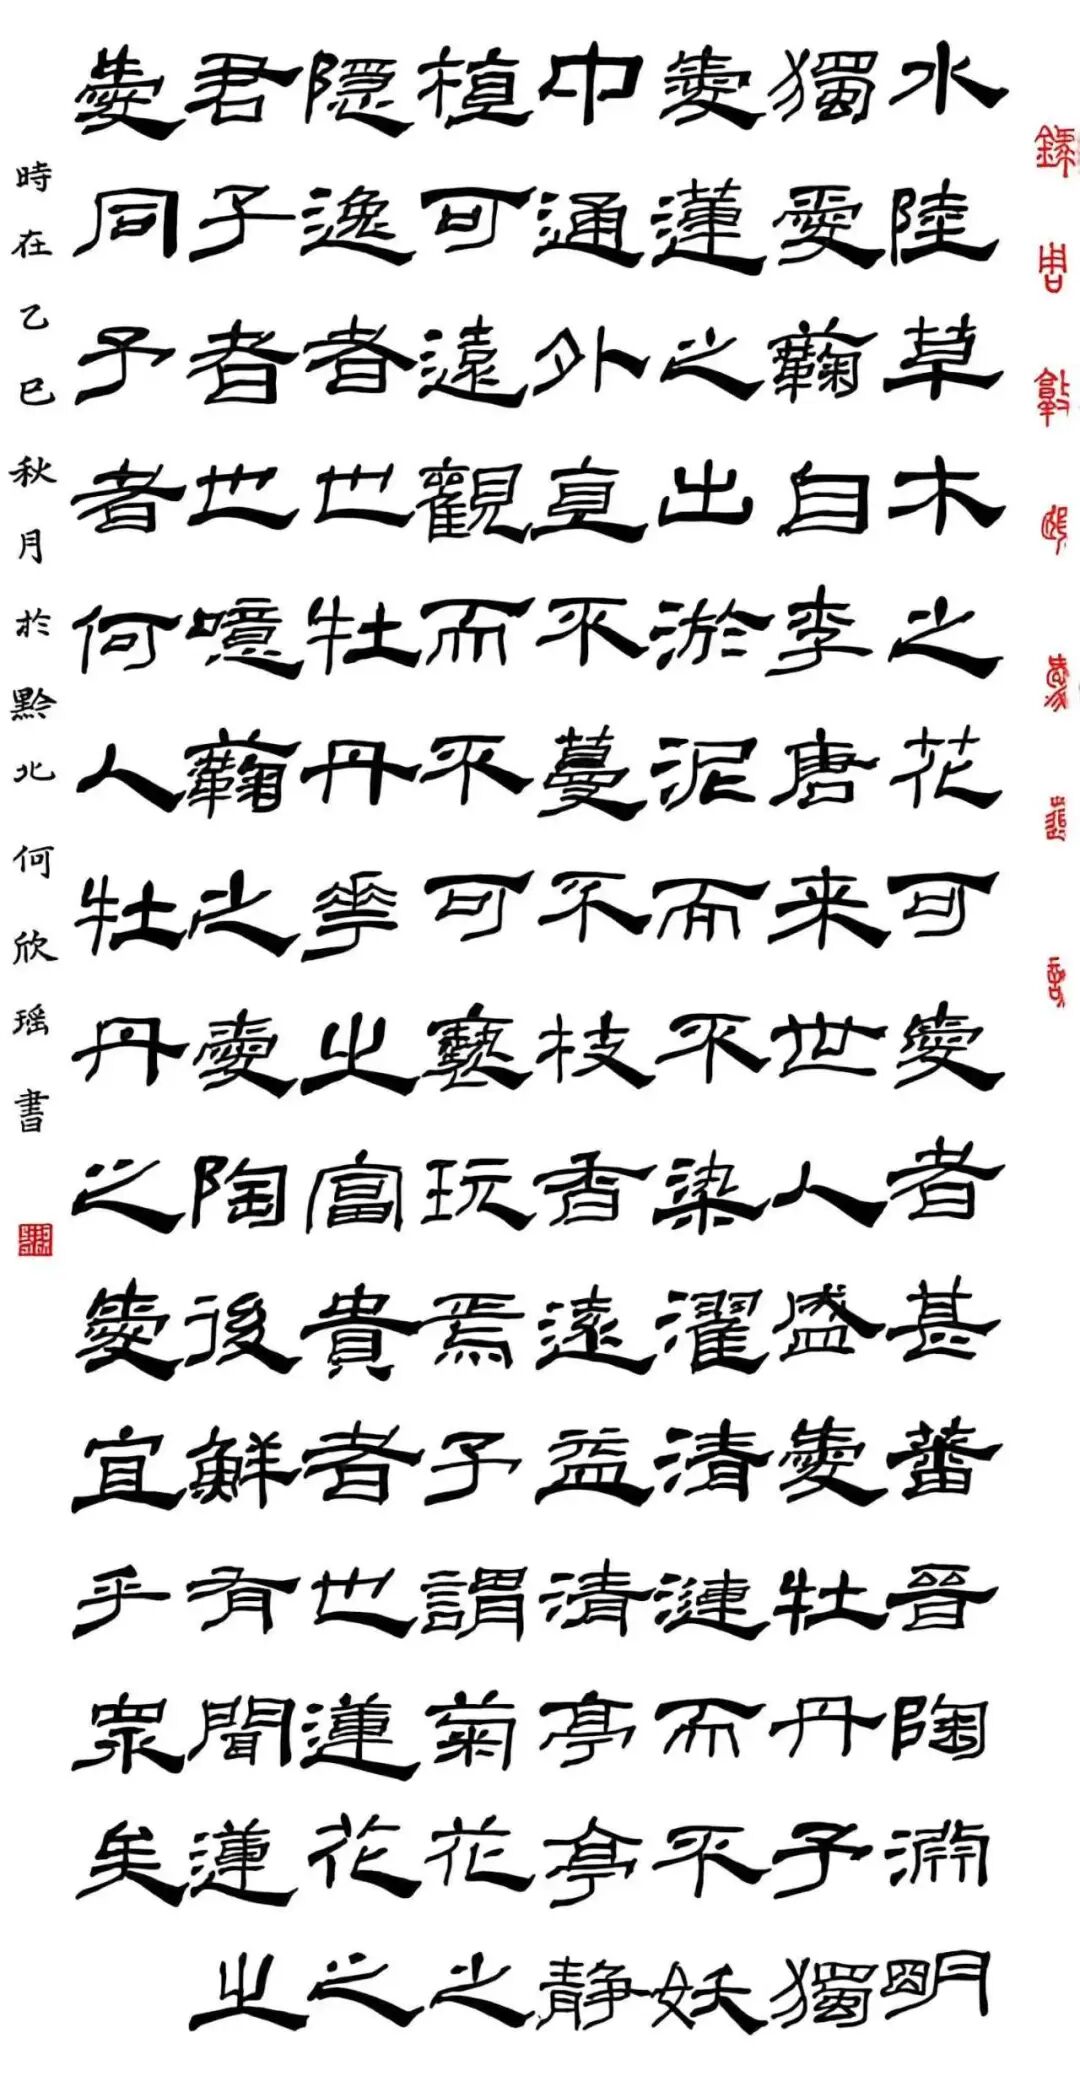 錄周敦頤愛蓮說
水陸草木之花可愛者甚蕃晉陶淵明
獨愛蘜自李唐来世人盛愛牡丹予獨
愛蓮之出淤泥而不染濯清漣而不妖
中通外直不蔓不枝香遠益清亭亭静
植可遠觀而不可褻玩焉予謂菊花之
隱逸者也牡丹華之富貴者也蓮花之
君子者也噫蘜之愛陶後鮮有聞蓮之
愛同予者何人牡丹之愛宜乎衆矣
時在乙巳秋月於黔北何欣瑶書